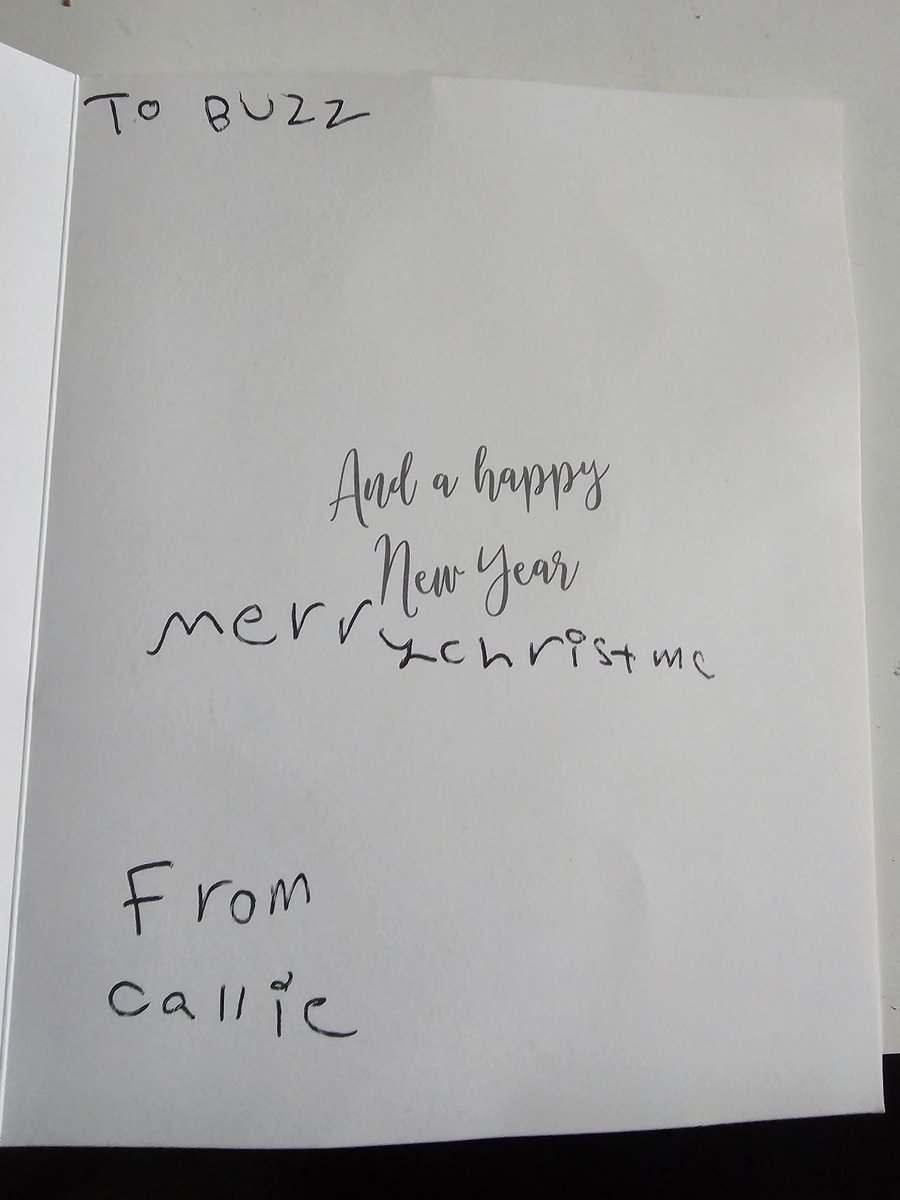 TO BUZZ
And a happy
New Year
merrychristmc
From
callie